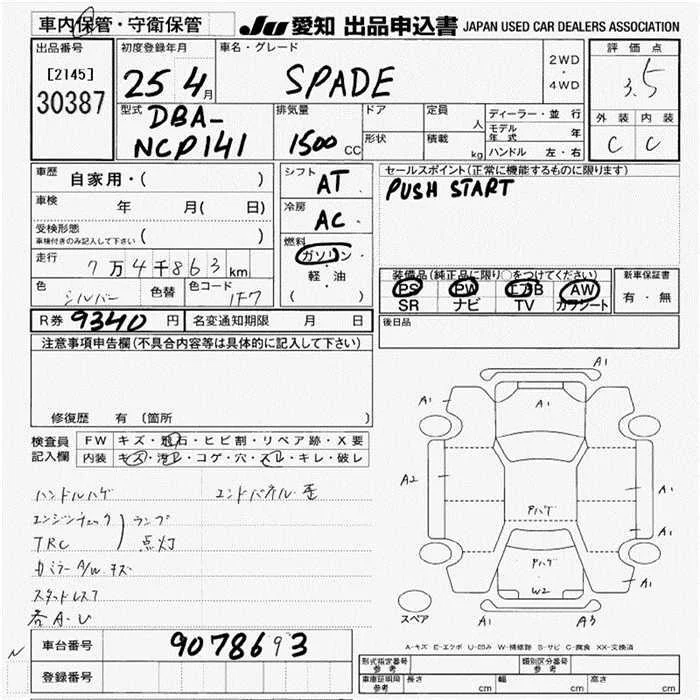 車内保管・守衛保管
JU 愛知 出品申込書 JAPAN USED CAR DEALERS ASSOCIATION
出品番号
[2145]
30387
初度登録年月
25 4月
車名・グレード
SPADE
2WD
・
4WD
評価点
3.5
外装 内装
C C
型式
DBA-
NCP141
排気量
1500 CC
ドア
形状
定員 人
積載 kg
ディーラー・並行
モデル年式 年
ハンドル 左・右
車歴 自家用・( )
車検 年 月( 日)
受検形態
車検付きのみ記入して下さい ( )
走行 7万4千863km
色 シルバー 色替 色コード 1F7
シフト AT
冷房 AC
燃料
ガソリン
・
軽・油
( )
セールスポイント(正常に機能するものに限ります)
PUSH START
装備品(純正品に限り○をつけてください)
PS PW エアB AW
SR ナビ TV カワシート
新車保証書
有・無
後日品
R券 9340 円 名変通知期限 月 日
注意事項申告欄(不具合内容等は具体的に記入して下さい)
修復歴 有 〔箇所 〕
検査員
記入欄
FW キズ・飛石・ヒビ割・リペア跡・X要
内装 キズ・汚レ・コゲ・穴・スレ・キレ・破レ
ハンドルハゲ エンドパネル歪
エンジンチェック ランプ
TRC 点灯
カミラーA/W キズ
スタッドレス7
各A・U
A1
A1
A1
A1
A2
A1
A1
A1
Pハゲ
Pハゲ
W2
A1
A3
スペア
A-キズ E-エクボ U-凹み W-補修跡 S-サビ C-腐食 XX-交換済
車台番号 9078693
登録番号
形式指定番号 参考
類別区分番号 参考
車庫証明用 参考 長さ cm 幅 cm 高さ cm